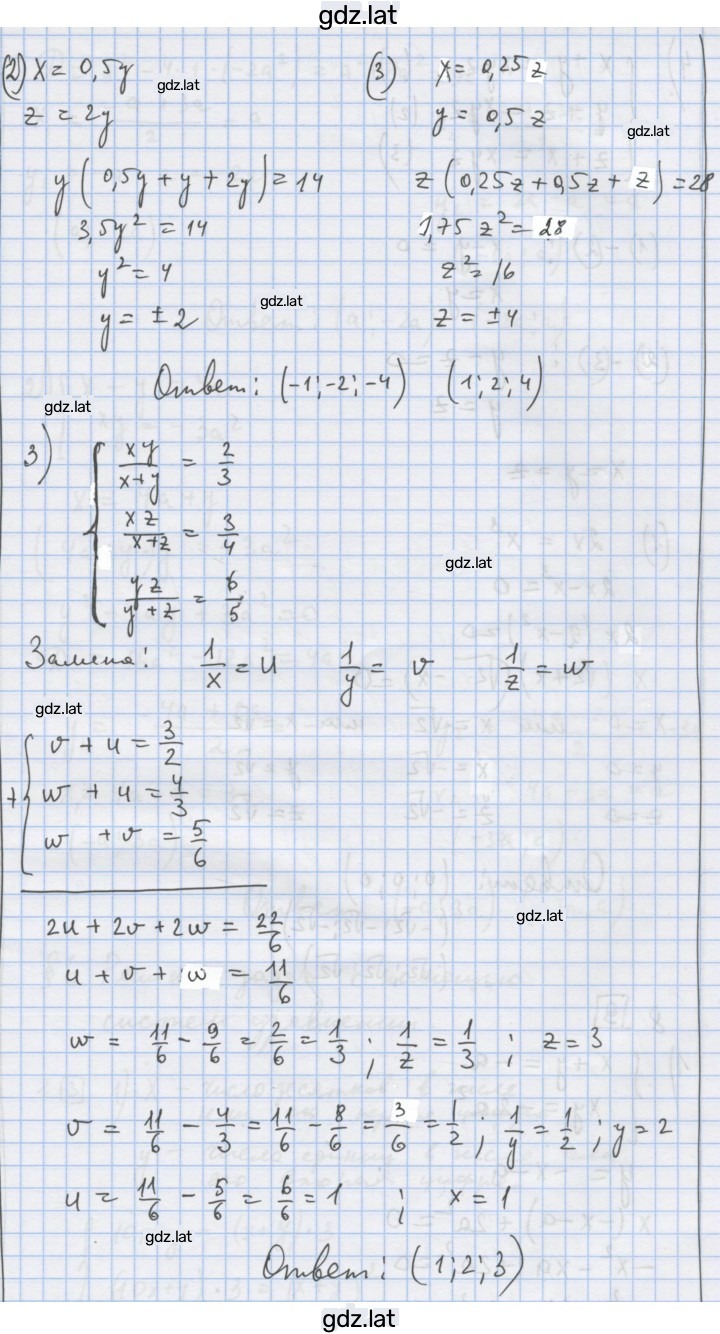 gdz.lat
(2) x = 0,5y
z = 2y
y(0,5y + y + 2y) = 14
3,5y² = 14
y² = 4
y = ±2
(3) x = 0,25z
y = 0,5z
z(0,25z + 0,5z + z) = 28
1,75z² = 28
z² = 16
z = ±4
gdz.lat
gdz.lat
gdz.lat
Ответ: (-1; -2; -4) (1; 2; 4)
gdz.lat
3) { xy/(x+y) = 2/3
xz/(x+z) = 3/4
yz/(y+z) = 6/5
gdz.lat
Замена: 1/x = u 1/y = v 1/z = w
gdz.lat
+ { v + u = 3/2
w + u = 4/3
w + v = 5/6
2u + 2v + 2w = 22/6
gdz.lat
u + v + w = 11/6
w = 11/6 - 9/6 = 2/6 = 1/3 ; 1/z = 1/3 ; z = 3
v = 11/6 - 4/3 = 11/6 - 8/6 = 3/6 = 1/2 ; 1/y = 1/2 ; y = 2
u = 11/6 - 5/6 = 6/6 = 1 ; x = 1
gdz.lat
Ответ: (1; 2; 3)
gdz.lat